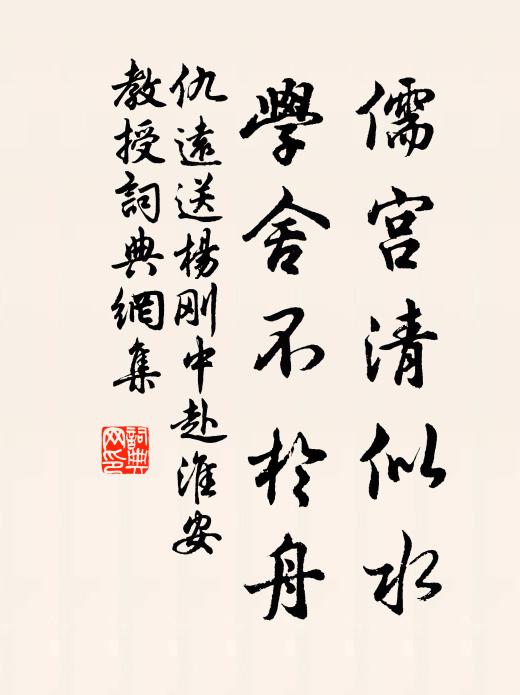 儒宫清似水
學舍不於舟
仇遠送楊剛中赴淮安
教授詞典網集
詞典网印